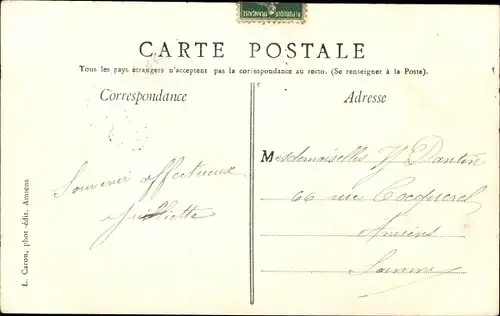 CARTE POSTALE
Tous les pays étrangers n'acceptent pas la correspondance au recto. (Se renseigner à la Poste).
Correspondance
Adresse
Souvenir affectueux
Juliette
Mesdemoiselles Dantin
66 rue Cocquerel
Amiens
Somme
L. Caron, phot.-édit. Amiens